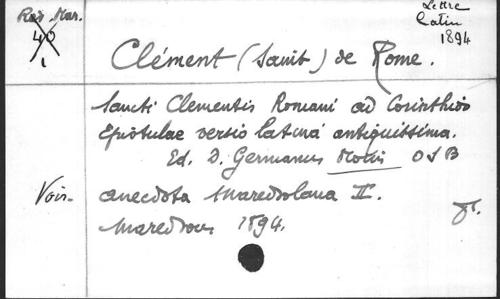 Red. Mar.
40
1
Lettre
latin
1894
Clément (Saint) de Rome.
Sancti Clementis Romani ad Corinthios
Epistulae versio latina antiquissima.
Ed. D. Germanus Morin OSB
Voir. anecdota Maredsolana II.
Maredsous 1894.